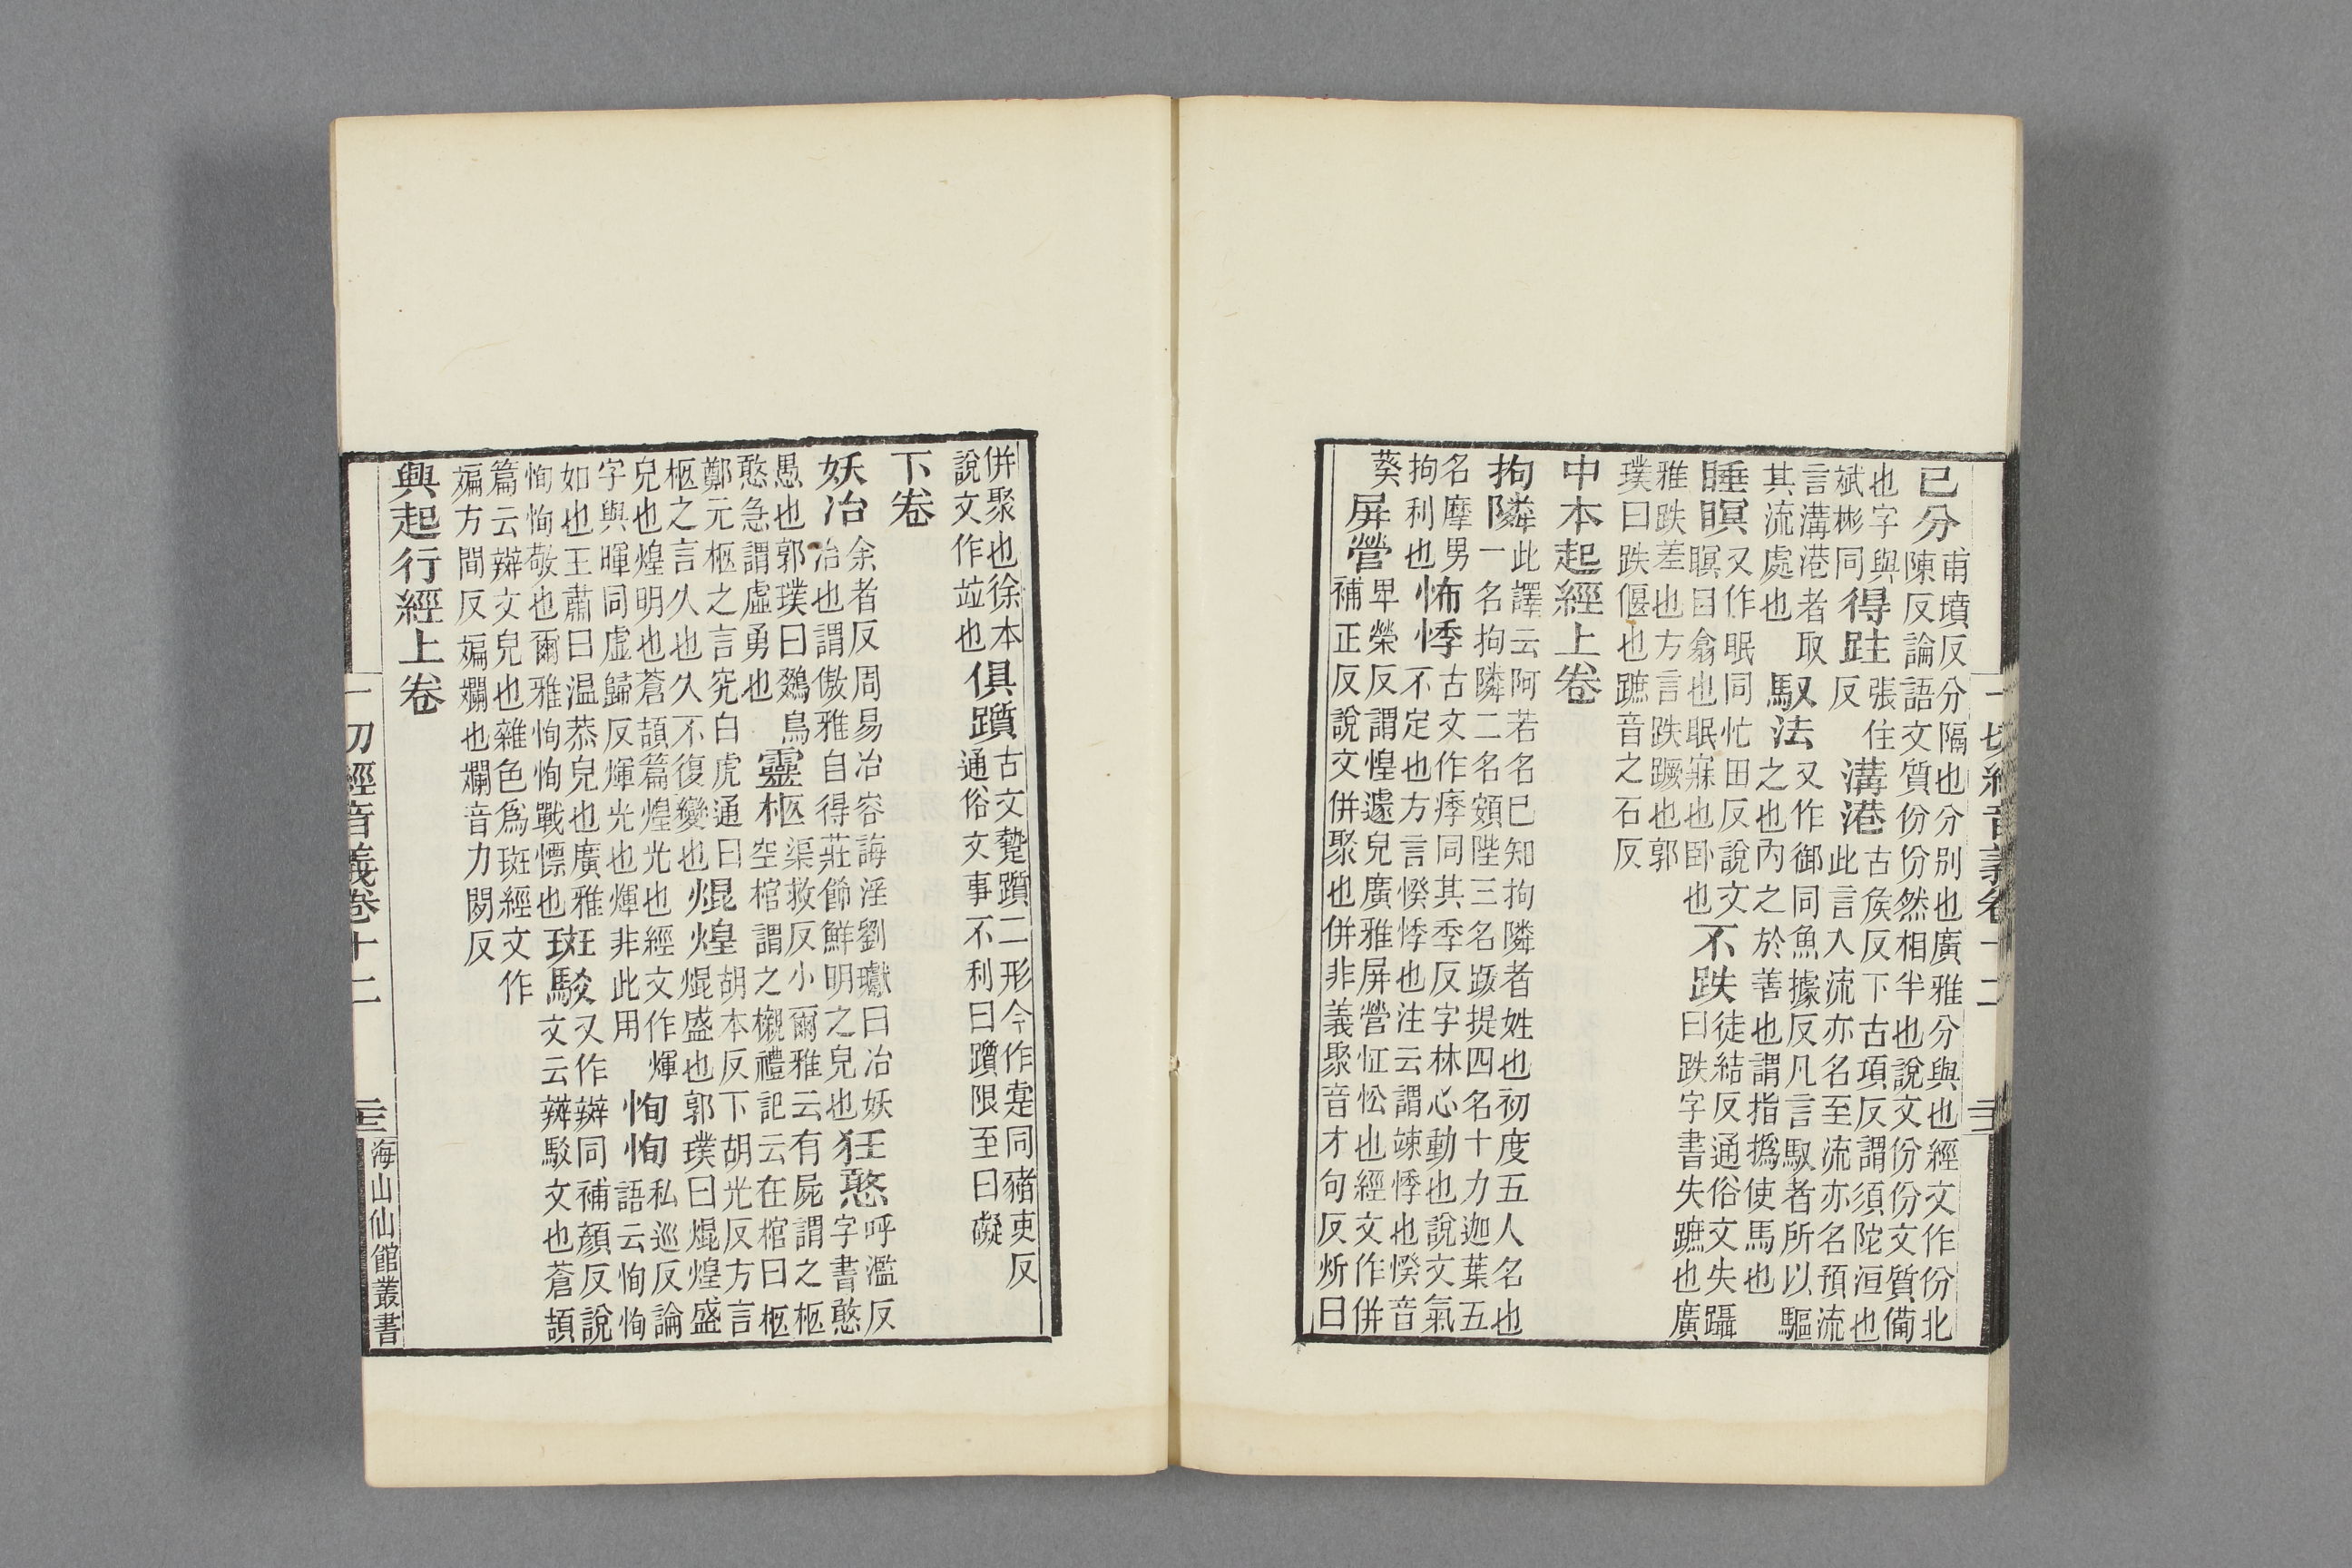 已分
甫墳反分隔也分别也廣雅分與也經文作份北
陳反論語文質份份然相半也說文份份文質備
也字與
斌彬同
得跓
張住
反
溝港
古矦反下古項反謂須陀洹也
此言入流亦名至流亦名預流
言溝港者取
其流處也
馭法
又作御同魚據反凡言馭者所以驅
之也内之於善也謂指撝使馬也
睡瞑
又作眠同忙田反說文
瞑目翕也眠寐也卧也
不跌
徒結反通俗文失躡
曰跌字書失蹠也廣
雅跌差也方言跌蹶也郭
璞曰跌偃也蹠音之石反
中本起經上卷
拘隣
此譯云阿若名已知拘隣者姓也初度五人名也
一名拘隣二名頞陛三名跋提四名十力迦葉五
名摩男
拘利也
怖悸
古文作痵同其季反字林心動也說文氣
不定也方言悸也注云謂竦悸也音
葵
屏營
卑榮反謂煌遽皃廣雅屏營怔忪也經文作併
補正反說文併聚也併非義聚音才句反炘曰
一切經音義卷十二
併聚也徐本
說文作竝也
俱躓
古文躓二形今作疐同豬吏反
通俗文事不利曰躓限至曰礙
下卷
妖冶
余者反周易冶容誨淫劉瓛曰冶妖
冶也謂傲雅自得莊飾鮮明之皃也
狂憨
呼濫反
字書憨
愚也郭璞曰鷄鳥
憨急謂虚勇也
靈柩
渠救反小爾雅云有屍謂之柩
空棺謂之櫬禮記云在棺曰柩
鄭元柩之言究白虎通曰
柩之言久也久不復變也
焜煌
胡本反下胡光反方言
焜盛也郭璞曰焜煌盛
皃也煌明也蒼頡篇煌光也經文作煇
字與暉同虚歸反煇光也煇非此用
恂恂
私巡反論
語云恂恂
如也王肅曰温恭皃也廣雅
恂恂敬也爾雅恂恂戰慄也
斑駁
又作辬同補顏反說
文云辬駁文也蒼頡
篇云辬文皃也雜色爲斑經文作
斒方間反斒斕也斕音力閑反
興起行經上卷
一切經音義卷十二
三
海山仙館叢書